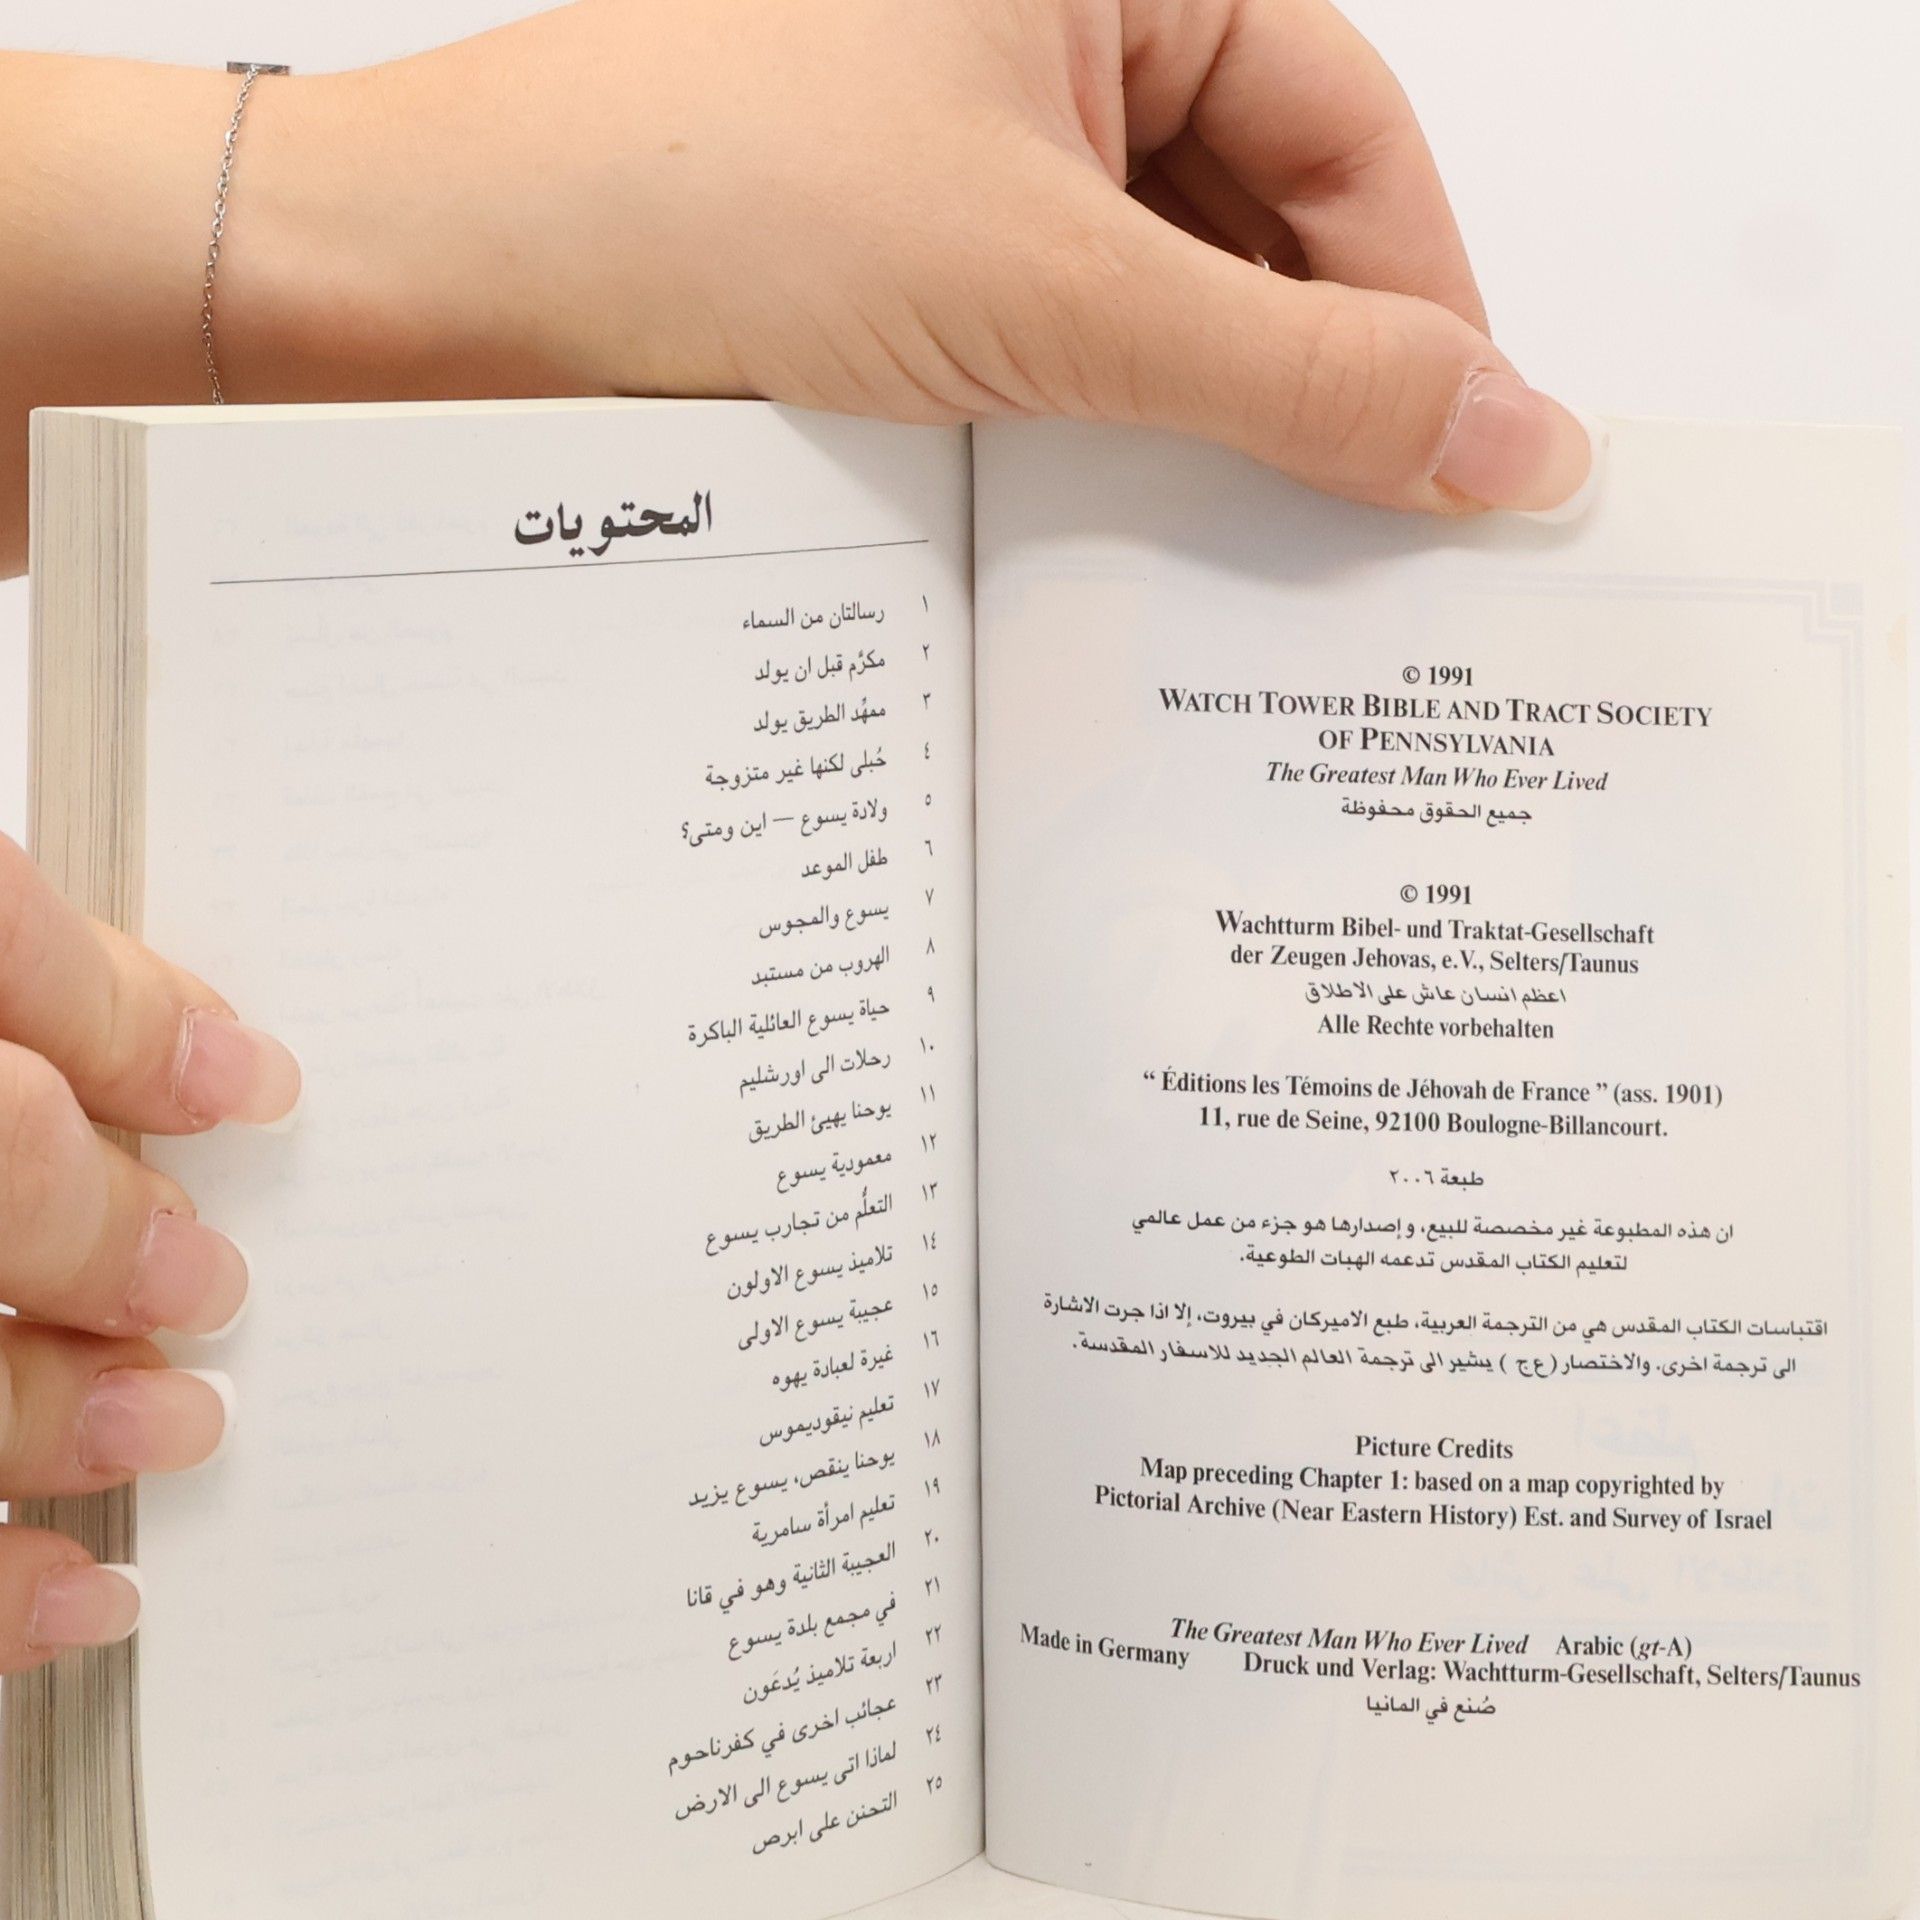 © 1991
WATCH TOWER BIBLE AND TRACT SOCIETY
OF PENNSYLVANIA
The Greatest Man Who Ever Lived
جميع الحقوق محفوظة
© 1991
Wachtturm Bibel- und Traktat-Gesellschaft
der Zeugen Jehovas, e.V., Selters/Taunus
اعظم انسان عاش على الاطلاق
Alle Rechte vorbehalten
“ Éditions les Témoins de Jéhovah de France ” (ass. 1901)
11, rue de Seine, 92100 Boulogne-Billancourt.
طبعة ٢٠٠٦
ان هذه المطبوعة غير مخصصة للبيع، وإصدارها هو جزء من عمل عالمي
لتعليم الكتاب المقدس تدعمه الهبات الطوعية.
اقتباسات الكتاب المقدس هي من الترجمة العربية، طبع الاميركان في بيروت، إلا اذا جرت الاشارة
الى ترجمة اخرى. والاختصار (ع‌ج) يشير الى ترجمة العالم الجديد للاسفار المقدسة.
Picture Credits
Map preceding Chapter 1: based on a map copyrighted by
Pictorial Archive (Near Eastern History) Est. and Survey of Israel
The Greatest Man Who Ever Lived Arabic (gt-A)
Made in Germany Druck und Verlag: Wachtturm-Gesellschaft, Selters/Taunus
صُنع في المانيا
المحتويات
١ رسالتان من السماء
٢ مكرَّم قبل ان يولد
٣ ممهِّد الطريق يولد
٤ حُبلى لكنها غير متزوجة
٥ ولادة يسوع — اين ومتى؟
٦ طفل الموعد
٧ يسوع والمجوس
٨ الهروب من مستبد
٩ حياة يسوع العائلية الباكرة
١٠ رحلات الى اورشليم
١١ يوحنا يهيئ الطريق
١٢ معمودية يسوع
١٣ التعلُّم من تجارب يسوع
١٤ تلاميذ يسوع الاولون
١٥ عجيبة يسوع الاولى
١٦ غيرة لعبادة يهوه
١٧ تعليم نيقوديموس
١٨ يوحنا ينقص، يسوع يزيد
١٩ تعليم امرأة سامرية
٢٠ العجيبة الثانية وهو في قانا
٢١ في مجمع بلدة يسوع
٢٢ اربعة تلاميذ يُدعَون
٢٣ عجائب اخرى في كفرناحوم
٢٤ لماذا اتى يسوع الى الارض
٢٥ التحنن على ابرص